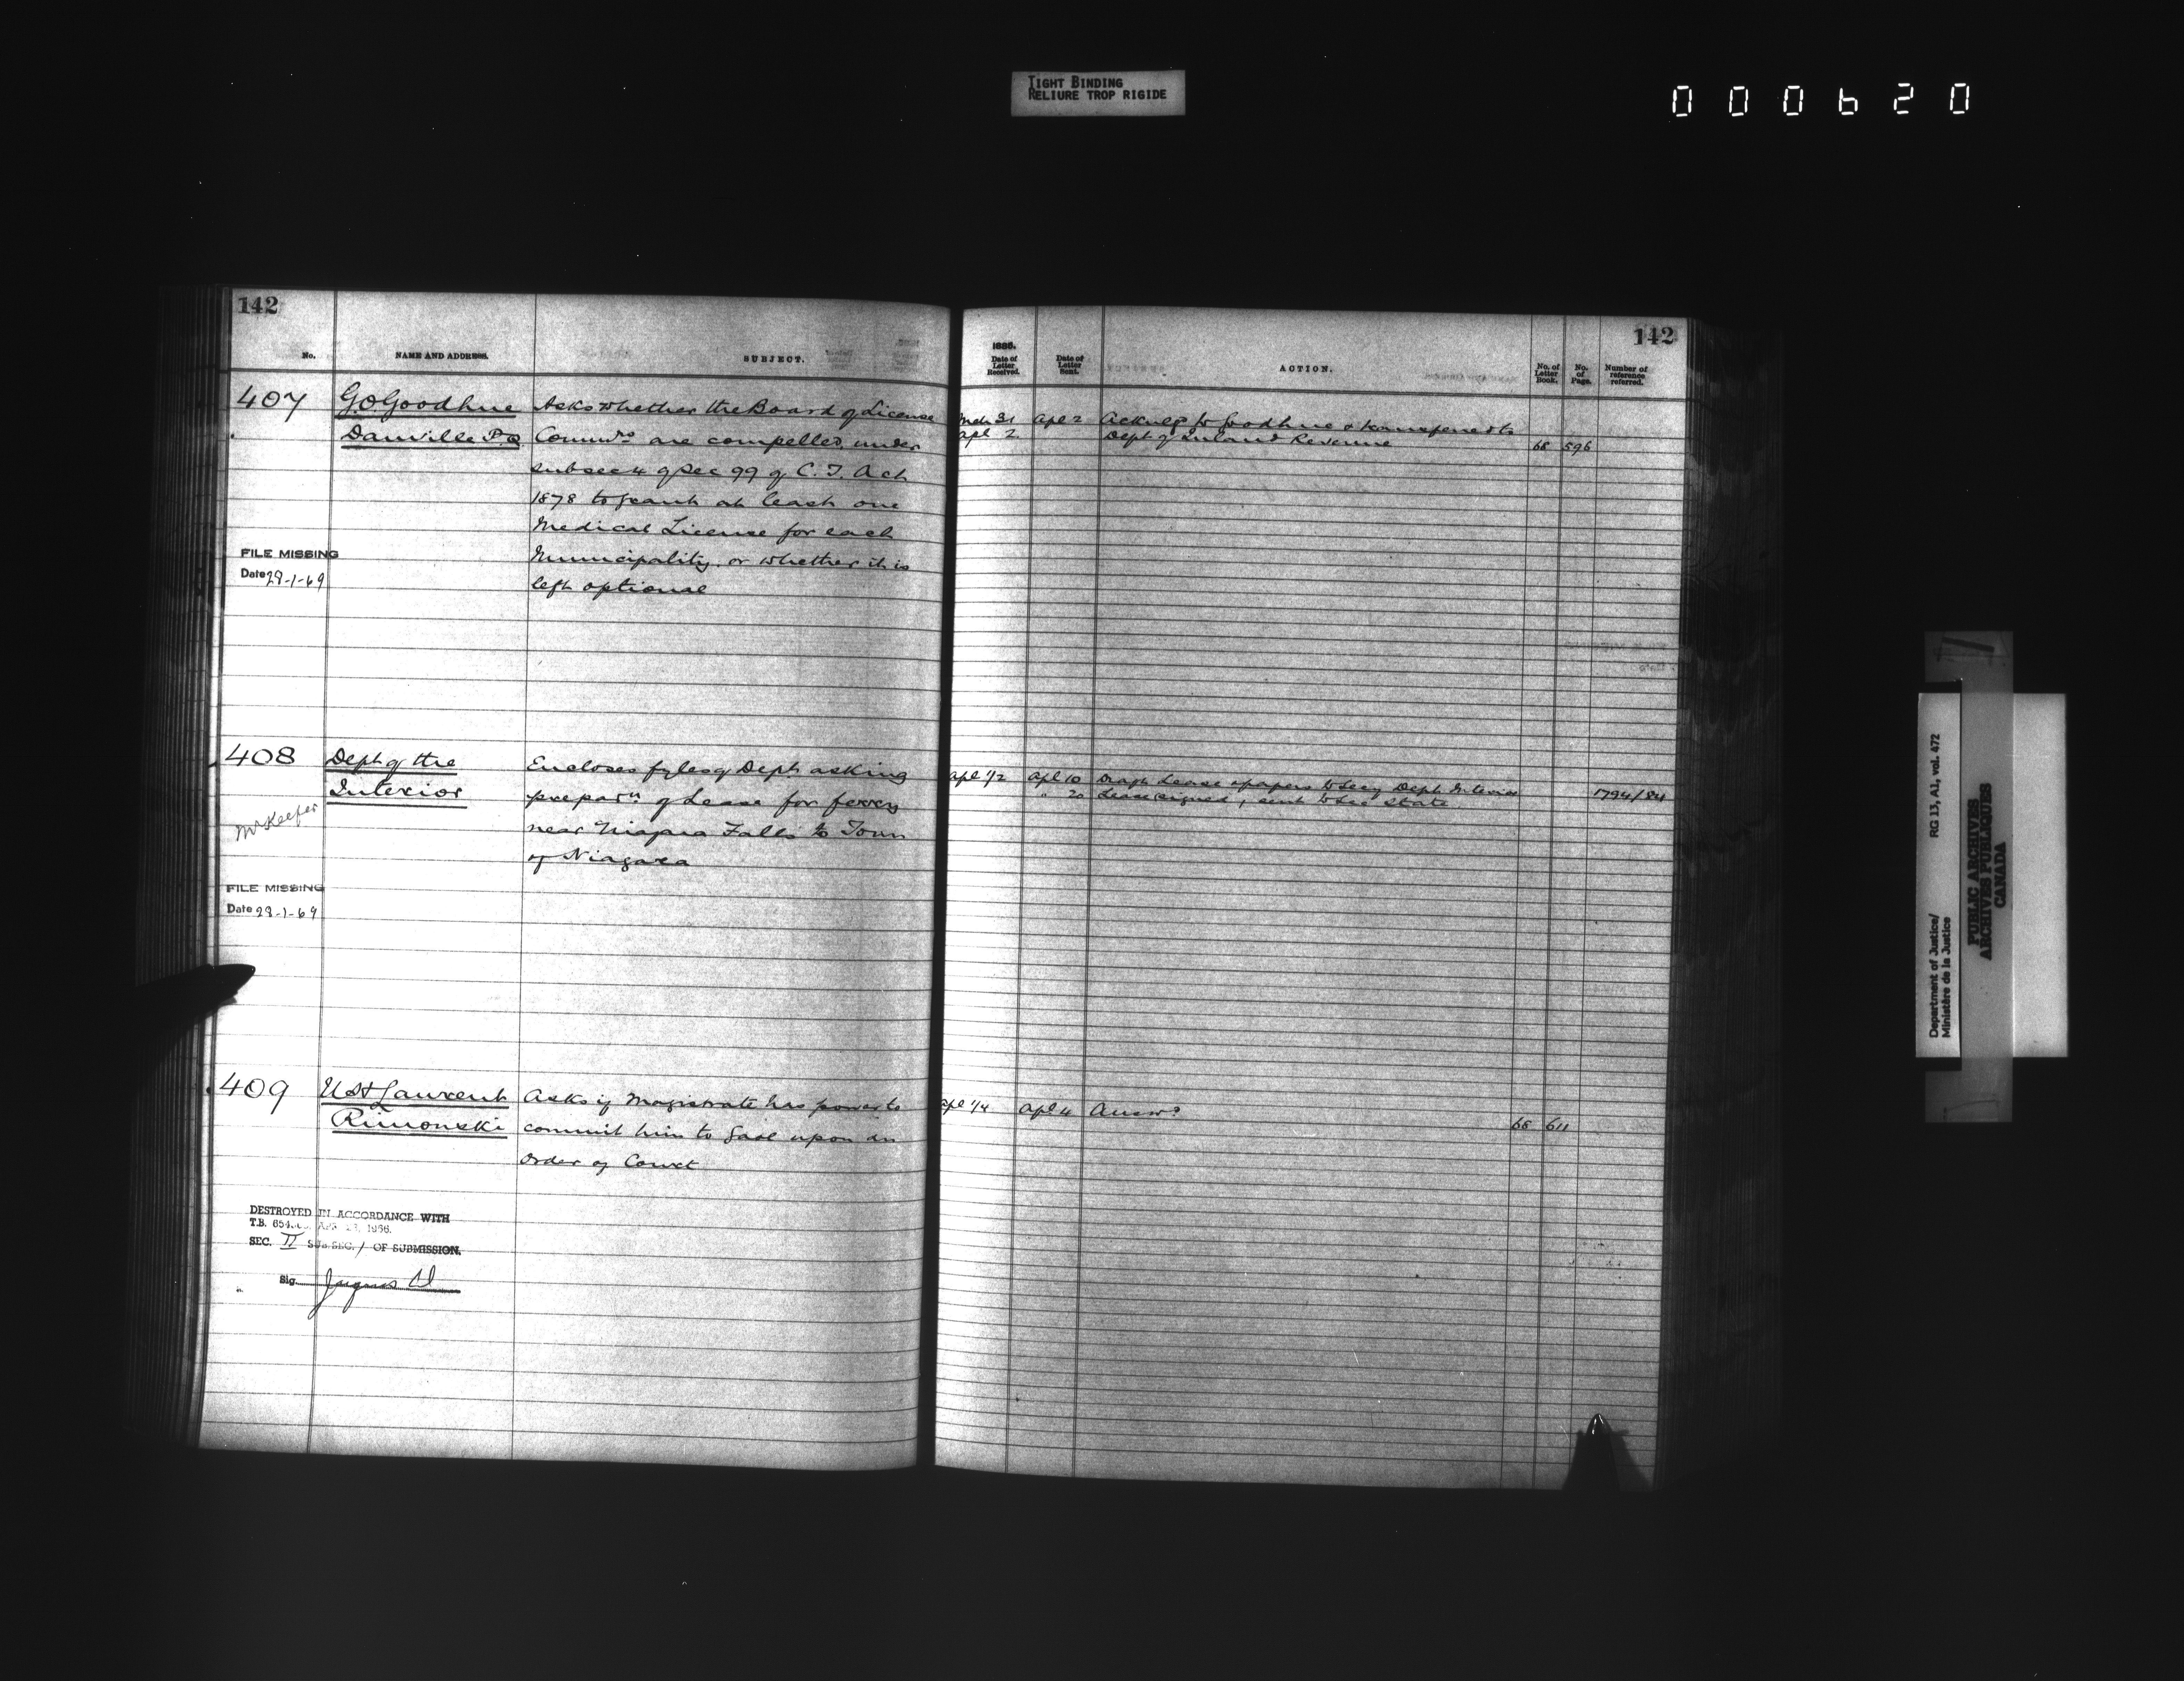 TIGHT BINDING
RELIURE TROP RIGIDE
000620
142
No.
NAME AND ADDRESS.
SUBJECT.
407
G.O Goodhue
Danville P.Q
Asks whether the Board of License
Commrs are compelled under
subsec 4 of Sec 99 of C. T. Act
1878 to grant at least one
Medical License for each
Municipality or whether it is
left optional
FILE MISSING
Date 29-1-69
408
Dept of the
Interior
McKeefer
Encloses fyles of Dept asking
preparn of Lease for ferry
near Niagara Falls to Town
of Niagara
FILE MISSING
Date 29-1-69
409
U St Laurent
Rimouski
Asks if Magistrate has power to
commit him to Gaol upon an
Order of Court
DESTROYED IN ACCORDANCE WITH
T.B. 654 1966.
SEC. II SUB SEC. 1 OF SUBMISSION.
Sig.
142
Date of Letter Received.
Date of Letter Sent.
ACTION.
No. of Letter Book.
No. of Page.
Number of reference referred.
Mch 31 Apl 2 Ackng to Goodhue & transferred to
Apl 2 Dept of Inland Revenue 596
Apl 1/2 Apl 10 Draft Lease & papers to Secy Dept Interior
" 20 Lease signed, sent to Sec State 1794/84
Apl 1/4 Apl 4 Answd
611
Department of Justice/
Ministère de la Justice
RG 13, A1, vol. 472
PUBLIC ARCHIVES
ARCHIVES PUBLIQUES
CANADA